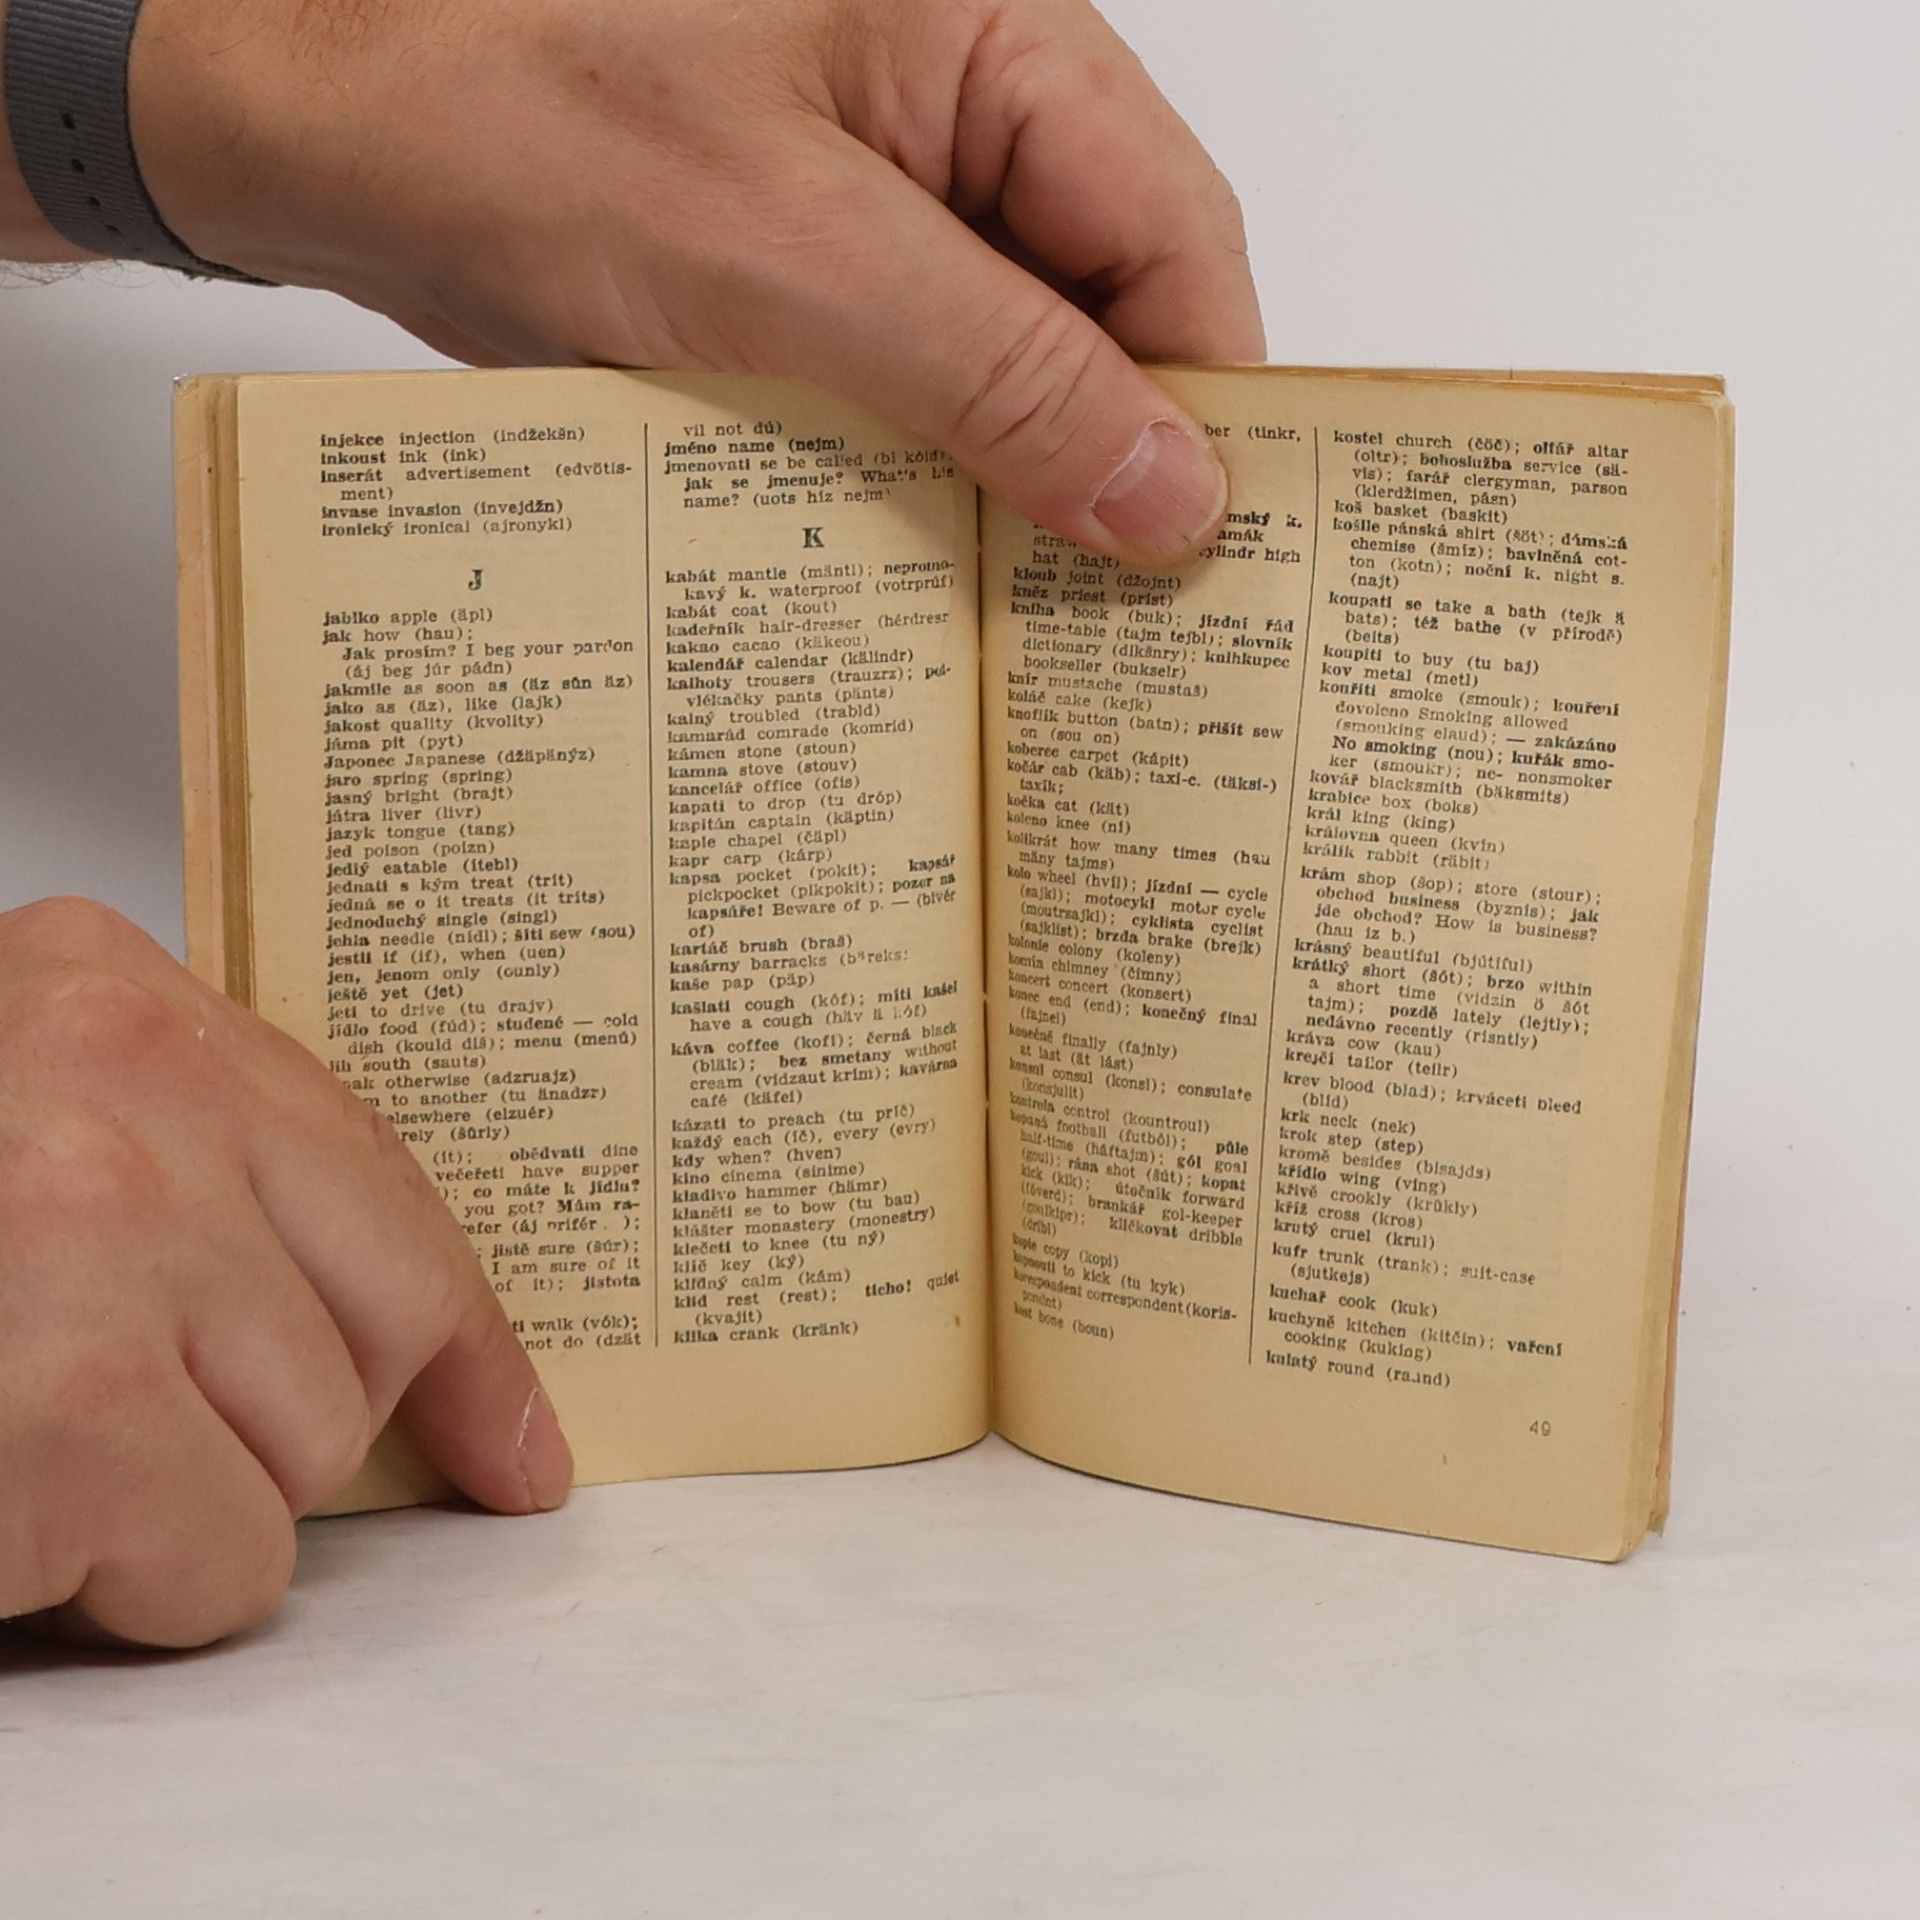 injekce injection (indžekšn)
inkoust ink (ink)
inserát advertisement (edvötis-
ment)
invase invasion (invejdžn)
ironický ironical (ajronykl)
J
jablko apple (äpl)
jak how (hau);
Jak prosím? I beg your pardon
(áj beg júr pádn)
jakmile as soon as (äz sůn äz)
jako as (äz), like (lajk)
jakost quality (kvolity)
jáma pit (pyt)
Japonec Japanese (džäpänýz)
jaro spring (spring)
jasný bright (brajt)
játra liver (livr)
jazyk tongue (tang)
jed poison (poizn)
jedlý eatable (ítebl)
jednati s kým treat (trít)
jedná se o it treats (it tríts)
jednoduchý single (singl)
jehla needle (nídl); šíti sew (sou)
jestli if (if), when (uen)
jen, jenom only (ounly)
ještě yet (jet)
jeti to drive (tu drajv)
jídlo food (fúd); studené — cold
dish (kould diš); menu (menú)
jih south (sauts)
otherwise (adzruajz)
to another (tu änadzr)
elsewhere (elzuér)
(šúrly)
(ít); obědvati dine
večeřeti have supper
co máte k jídlu?
you got? Mám ra-
(áj prifér );
jistě sure (šúr);
I am sure of it
of it); jistota
walk (vók);
not do (dzät
vil not dú)
jméno name (nejm)
jmenovati se be called (bi kóld),
jak se jmenuje? What's his
name? (uots hiz nejm)
K
kabát mantle (mäntl); nepromo-
kavý k. waterproof (votrprúf)
kabát coat (kout)
kadeřník hair-dresser (hérdresr
kakao cacao (käkeou)
kalendář calendar (kälindr)
kalhoty trousers (trauzrz); pod-
vlékačky pants (pänts)
kalný troubled (trabld)
kamarád comrade (komrid)
kámen stone (stoun)
kamna stove (stouv)
kancelář office (ofis)
kapati to drop (tu dróp)
kapitán captain (käptin)
kaple chapel (čäpl)
kapr carp (kárp)
kapsa pocket (pokit); kapsář
pickpocket (pikpokit); pozor na
kapsáře! Beware of p. — (bivér
of)
kartáč brush (braš)
kasárny barracks (bäreks)
kaše pap (päp)
kašlati cough (kóf); míti kašel
have a cough (häv ä kóf)
káva coffee (kofi); černá black
(bläk); bez smetany without
cream (vidzaut krím); kavárna
café (käfei)
kázati to preach (tu príč)
každý each (íč), every (evry)
kdy when? (hven)
kino cinema (sinime)
kladivo hammer (hämr)
klaněti se to bow (tu bau)
klášter monastery (monestry)
klečeti to knee (tu ný)
klíč key (ký)
klidný calm (kám)
klid rest (rest); ticho! quiet
(kvajit)
klika crank (kränk)
(tinkr,
k.
high
hat (hajt)
kloub joint (džojnt)
kněz priest (príst)
kniha book (buk); jízdní řád
time-table (tajm tejbl); slovník
dictionary (dikšnry); knihkupec
bookseller (bukselr)
knír mustache (mustaš)
koláč cake (kejk)
knoflík button (batn); přišít sew
on (sou on)
koberec carpet (kápit)
kočár cab (käb); taxi-c. (täksi-)
taxík;
kočka cat (kät)
koleno knee (ní)
kolikrát how many times (hau
mäny tajms)
kolo wheel (hvíl); jízdní — cycle
(sajkl); motocykl motor cycle
(moutrsajkl); cyklista cyclist
(sajklist); brzda brake (brejk)
kolonie colony (koleny)
komín chimney (čimny)
koncert concert (konsert)
konec end (end); konečný final
(fajnel)
konečně finally (fajnly)
at last (ät lást)
konsul consul (konsl); consulate
(konsjulit)
kontrola control (kountroul)
kopaná football (futból); půle
half-time (háftajm); gól goal
(goul); rána shot (šút); kopat
kick (kik); útočník forward
(fóverd); brankář gol-keeper
(goulkípr); kličkovat dribble
(dribl)
kopie copy (kopi)
kopnouti to kick (tu kyk)
korespondent correspondent (koris-
pondnt)
kost bone (boun)
kostel church (čöč); oltář altar
(oltr); bohoslužba service (sä-
vis); farář clergyman, parson
(klerdžimen, pásn)
koš basket (baskit)
košile pánská shirt (šöt); dámská
chemise (šmíz); bavlněná cot-
ton (kotn); noční k. night s.
(najt)
koupati se take a bath (tejk ä
bats); též bathe (v přírodě)
(beits)
koupiti to buy (tu baj)
kov metal (metl)
kouřiti smoke (smouk); kouření
dovoleno Smoking allowed
(smouking elaud); — zakázáno
No smoking (nou); kuřák smo-
ker (smoukr); ne- nonsmoker
kovář blacksmith (bäksmits)
krabice box (boks)
král king (king)
královna queen (kvín)
králík rabbit (räbit)
krám shop (šop); store (stour);
obchod business (byznis); jak
jde obchod? How is business?
(hau iz b.)
krásný beautiful (bjútiful)
krátký short (šót); brzo within
a short time (vidzin ö šót
tajm); pozdě lately (lejtly);
nedávno recently (rísntly)
kráva cow (kau)
krejčí tailor (teilr)
krev blood (blad); krváceti bleed
(blíd)
krk neck (nek)
krok step (step)
kromě besides (bisajds)
křídlo wing (ving)
křivě crookly (krůkly)
kříž cross (kros)
krutý cruel (krul)
kufr trunk (trank); suit-case
(sjutkejs)
kuchař cook (kuk)
kuchyně kitchen (kitčin); vaření
cooking (kuking)
kulatý round (raund)
49